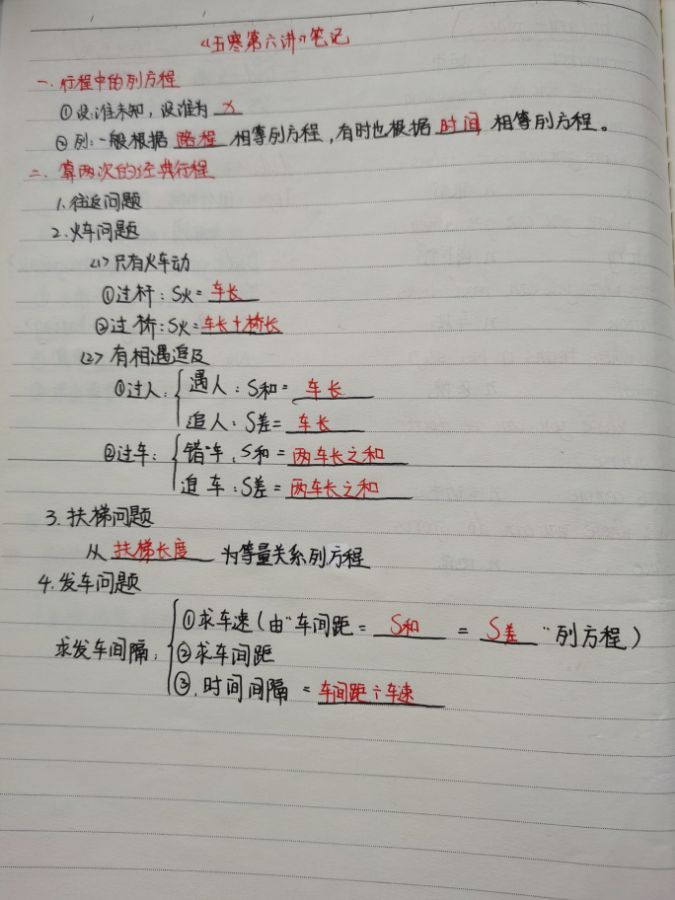 《五寒第六讲》笔记
一、行程中的列方程
①设:谁未知，设谁为 x
②列:一般根据 路程 相等列方程，有时也根据 时间 相等列方程。
二、算两次的经典行程
1.往返问题
2.火车问题
(1)只有火车动
①过杆：S火=车长
②过桥：S火=车长+桥长
(2)有相遇追及
①过人：{遇人：S和= 车长
追人：S差= 车长
②过车：{错车：S和=两车长之和
追车：S差=两车长之和
3.扶梯问题
从 扶梯长度 为等量关系列方程
4.发车问题
求发车间隔：{①求车速(由"车间距= S和 = S差 "列方程)
②求车间距
③.时间间隔 =车间距÷车速